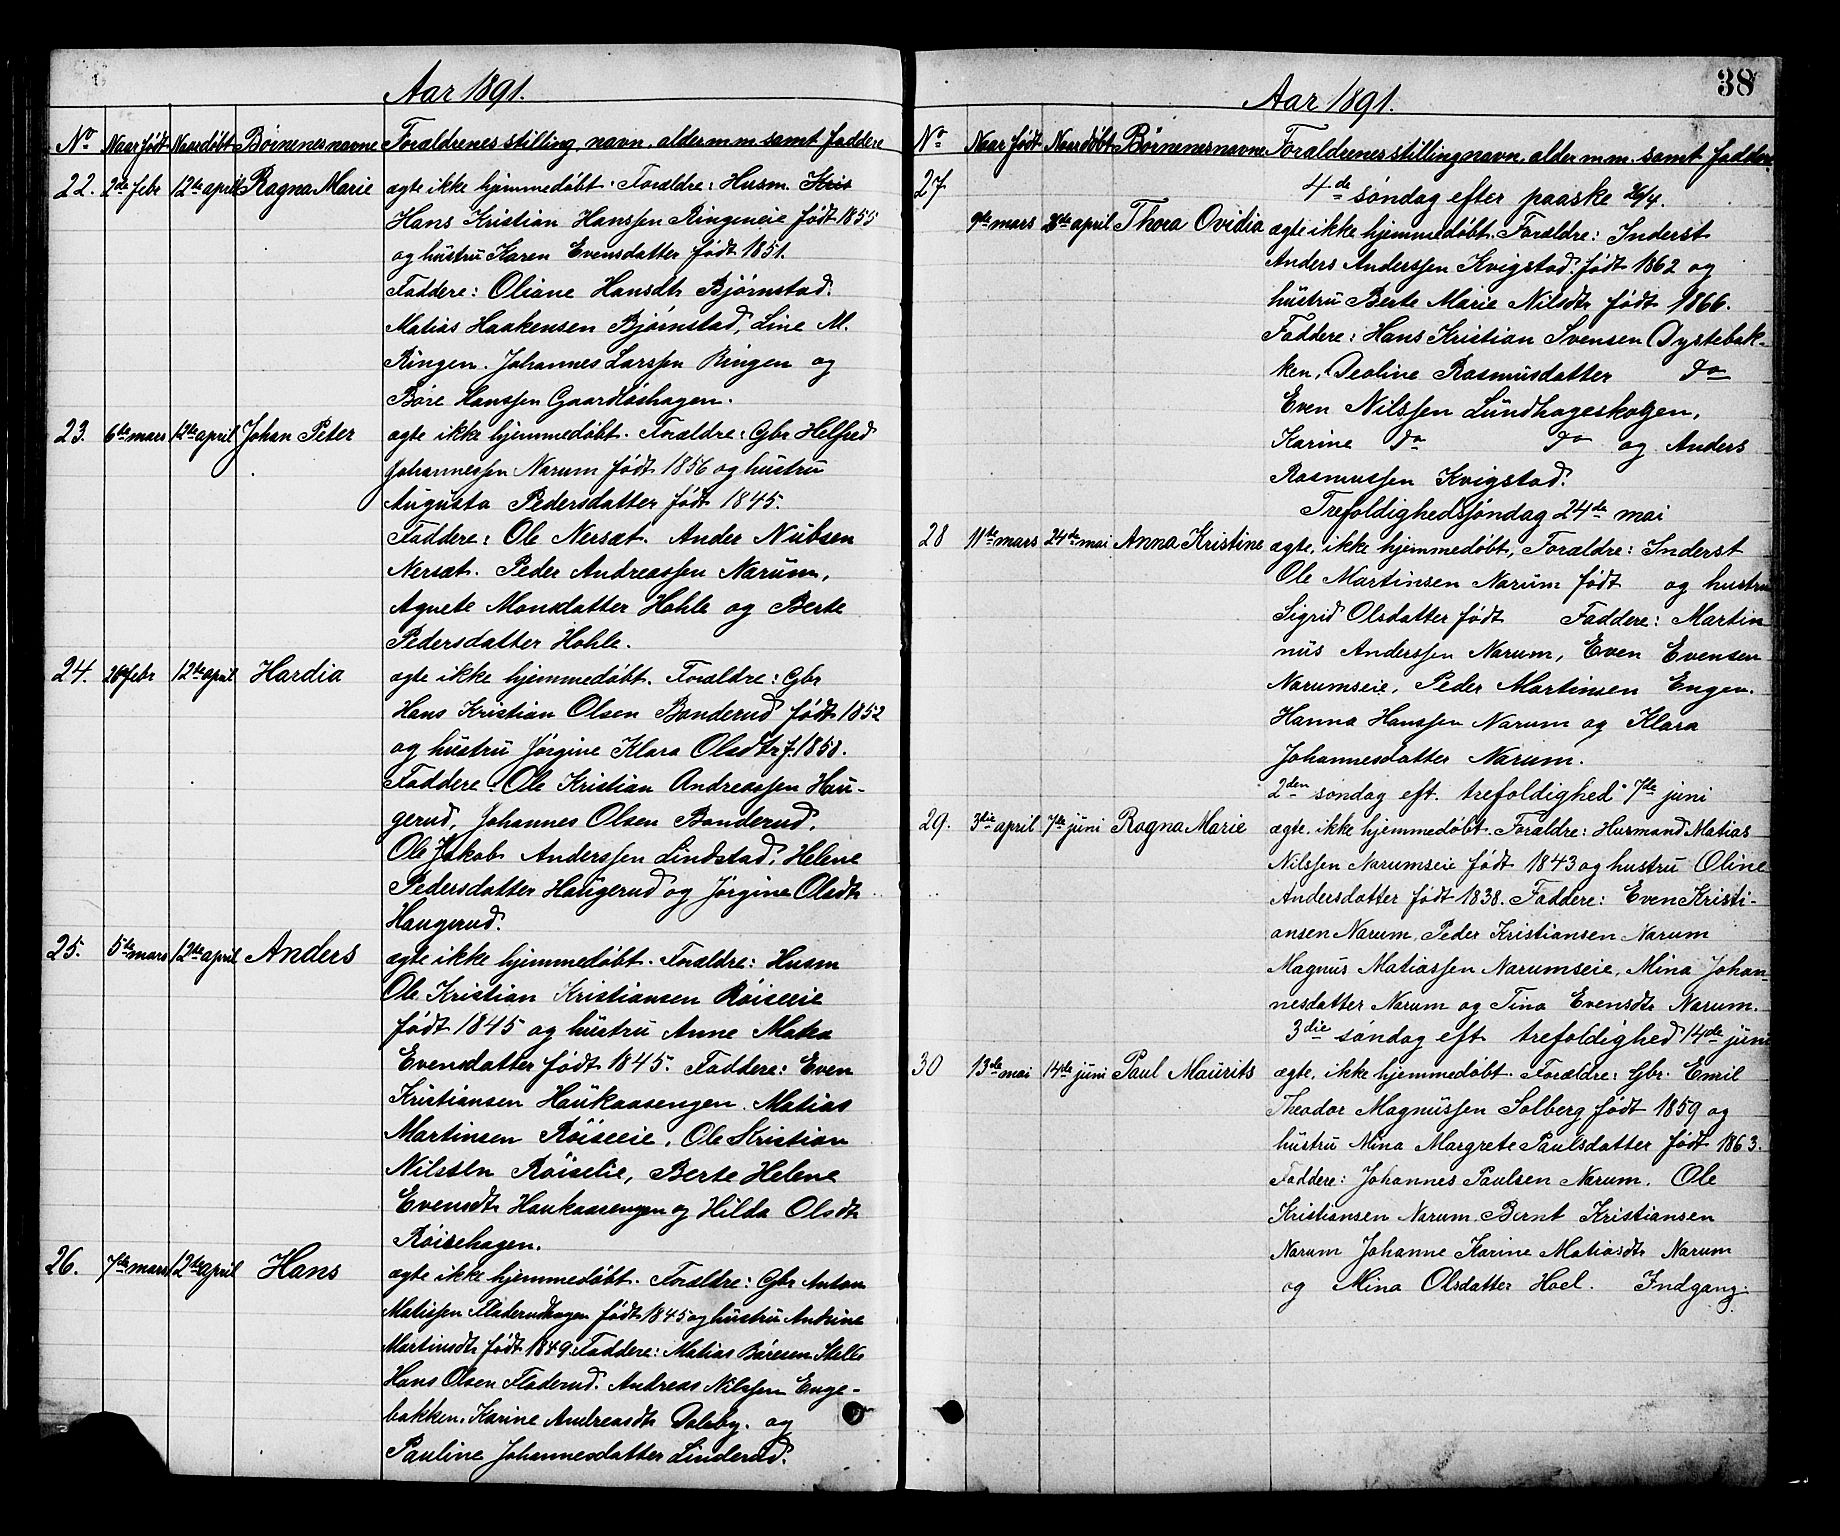 Aar 1891.
No Naar født Naar døbt Børnenes navne Forældrenes stilling, navn, alder m.m. samt faddere
22. 2de febr 12te april Ragna Marie ægte ikke hjemmedøbt. Forældre: Husm. Kris
Hans Kristian Hanssen Ringeneie født 1855
og hustru Karen Evensdatter født 1851.
Faddere: Oliane Hansdtr Bjørnstad.
Matias Haakensen Bjørnstad, Line M.
Ringen. Johannes Larssen Ringen og
Børe Hanssen Gaardløshagen.
23. 6te mars 12te april Johan Peter ægte ikke hjemmedøbt. Forældre: Gbr Helfred
Johannessen Narum født 1856 og hustru
Augusta Pedersdatter født 1845.
Faddere: Ole Nersæt. Ander Nubsen
Nersæt. Peder Andreassen Narum,
Agnete Monsdatter Hohle og Berte
Pedersdatter Hohle.
24. 26de febr 12te april Hardia ægte ikke hjemmedøbt. Forældre: Gbr
Hans Kristian Olsen Bonderud født 1852
og hustru Jørgine Klara Olsdtr f. 1858.
Faddere: Ole Kristian Andreassen Hau-
gerud, Johannes Olsen Bonderud.
Ole Jakob Anderssen Lindstad, Helene
Pedersdatter Haugerud og Jørgine Olsdtr
Haugerud.
25. 5te mars 12te april Anders ægte ikke hjemmedøbt. Forældre: Husm
Ole Kristian Kristiansen Røiseeie
født 1845 og hustru Anne Matea
Evensdatter født 1845. Faddere: Even
Kristiansen Haukaasengen. Matias
Martinsen Røiseeie, Ole Kristian
Nilssen Røiselie, Berte Helene
Evensdtr Haukaasengen og Hilda Olsdtr
Røisehagen.
26. 7de mars 12te april Hans ægte ikke hjemmedøbt. Forældre: Gbr Anton
Matissen Fladerudhagen født 1845 og hustru Antrine
Martinsdtr født 1849. Faddere: Matias Børesen Stelle
Hans Olsen Fladerud. Andreas Nilssen Enge-
bakken, Karine Andreasdtr Dalsby. og
Pauline Johannesdatter Linderud.
38
Aar 1891.
No Naar født Naar døbt Børnenes navne Forældrenes stilling navn, alder m.m. samt faddere
27 4de søndag efter paaske 26/4.
9de mars 26de april Thora Ovidia ægte ikke hjemmedøbt. Forældre: Inderst
Anders Anderssen Kvigstad født 1862 og
hustru Berte Marie Nilsdtr født 1866.
Faddere: Hans Kristian Svensen Dystebak-
ken, Deoline Rasmusdatter do
Even Nilssen Lundhageskogen,
Karine do do og Anders
Rasmussen Kvigstad.
Trefoldighedssøndag 24de mai
28 11te mars 24de mai Anna Kristine ægte, ikke hjemmedøbt, Forældre: Inderst
Ole Martinsen Narum født og hustru
Sigrid Olsdatter født Faddere: Martin
nus Anderssen Narum, Even Evensen
Narumseie, Peder Martinsen Engen.
Hanna Hanssen Narum og Klara
Johannesdatter Narum.
2den søndag eft. trefoldighed 7de juni
29. 3die april 7de juni Ragna Marie ægte, ikke hjemmedøbt. Forældre: Husmand Matias
Nilssen Narumseie født 1843 og hustru Oline
Andersdatter født 1838. Faddere: Even Kristi-
ansen Narum, Peder Kristiansen Narum
Magnus Matiassen Narumseie, Mina Johan-
nesdatter Narum og Tina Evensdtr Narum.
3die søndag eft trefoldighed 14de juni
30 13de mai 14de juni Paul Maurits ægte, ikke hjemmedøbt. Forældre: Gbr. Emil
Theodor Magnussen Solberg født 1859 og
hustru Mina Margrete Paulsdatter født 1863.
Faddere: Johannes Paulsen Narum. Ole
Kristiansen Narum, Bernt Kristiansen
Narum Johanne Karine Matiasdtr Narum
og Mina Olsdatter Hoel. Indgang.